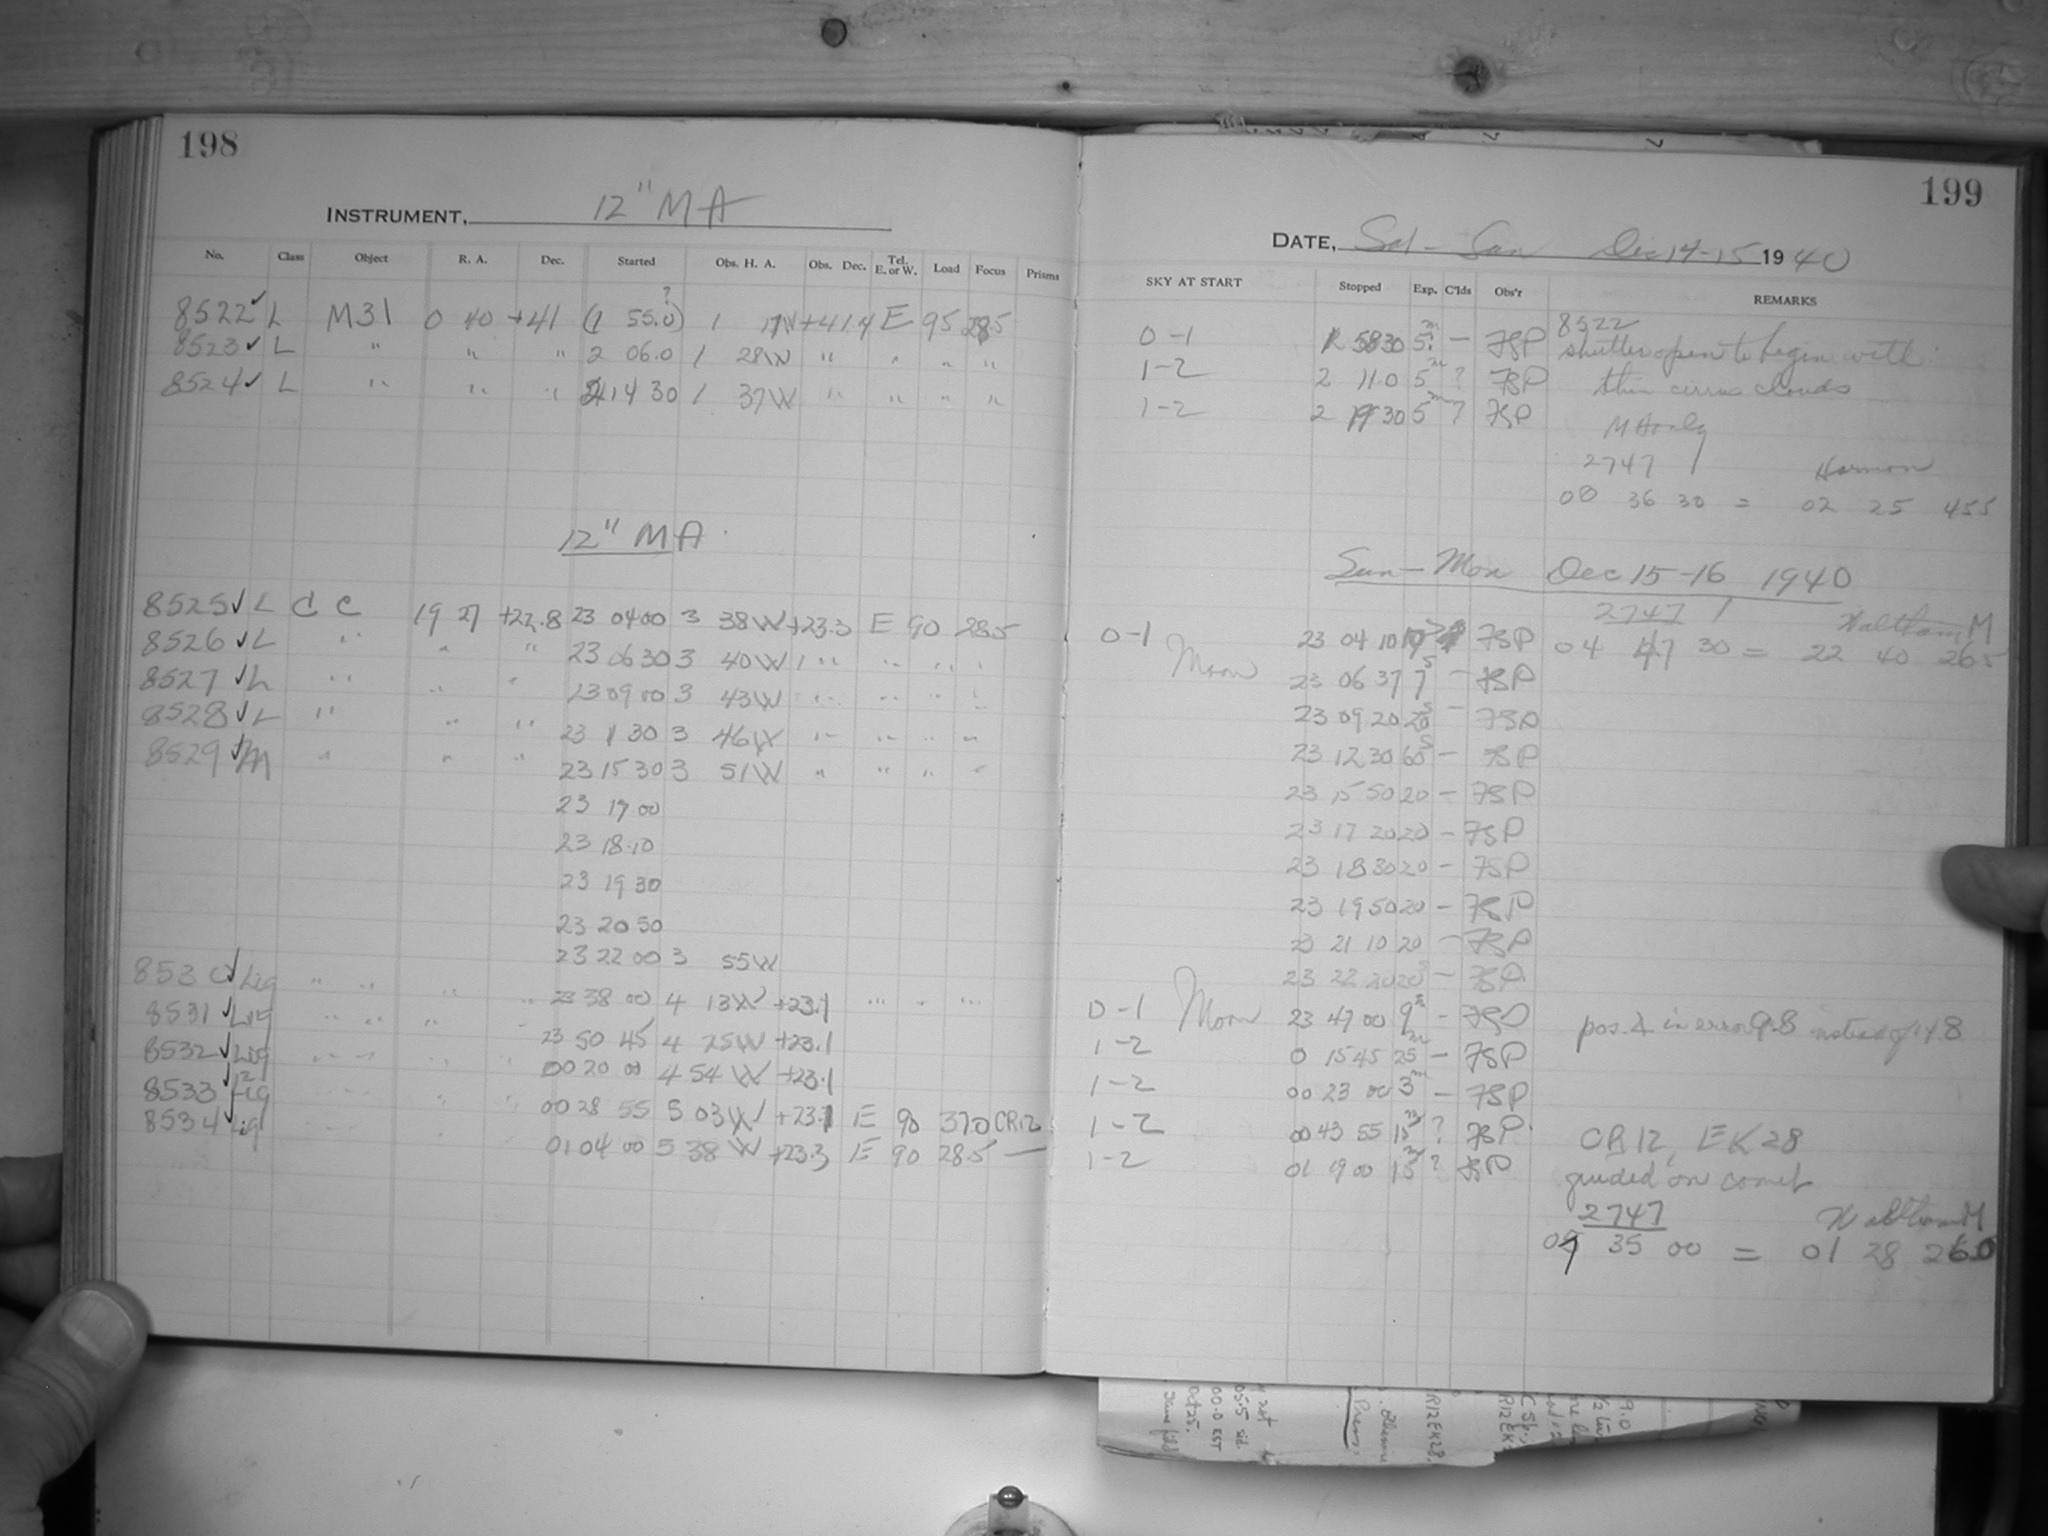 198
INSTRUMENT, 12" MA
No. Class Object R. A. Dec. Started Obs. H. A. Obs. Dec. Tel. E. or W. Load Focus Prisms
8522 ✓ L M31 0 40 +41 (1 55.0)? 1 W +41.4 E 95 28.5
8523 ✓ L " " " 2 06.0 1 28W " " " "
8524 ✓ L " " " 2 14 30 1 37W " " " "
12" MA
8525 ✓ L C C 19 27 +22.8 23 04 00 3 38W +23.3 E 90 28.5
8526 ✓ L " " " 23 06 30 3 40W " " " "
8527 ✓ L " " " 23 09 00 3 43W " " " "
8528 ✓ L " " " 23 11 30 3 46W " " " "
8529 ✓ M " " " 23 15 30 3 51W " " " "
23 17 00
23 18 10
23 19 30
23 20 50
23 22 00 3 55W
8530 ✓ Lig " " " " 23 38 00 4 13W +23.1 " " "
8531 ✓ Lig " " " 23 50 45 4 25W +23.1
8532 ✓ Lig " " " " 00 20 00 4 54W +23.1
8533 ✓ Lig " " " 00 28 55 5 03W +23.1 E 90 37.0 CR12
8534 ✓ Lig " " " 01 04 00 5 38W +23.3 E 90 28.5 —
199
DATE, Sat - Sun Dec 14-15 1940
SKY AT START Stopped Exp. C'lds Obs'r REMARKS
0-1 58 30 5m? — FSP 8522 shutter open to begin with
1-2 2 11.0 5m ? FSP thin cirrus clouds
1-2 2 19 30 5m ? FSP
2747 Harmon
00 36 30 = 02 25 45.5
Sun - Mon Dec 15-16 1940
2747 Waltham M
0-1 23 04 10 10s FSP 04 47 30 = 22 40 26.5
Moon 23 06 37 7s — FSP
23 09 20 20s — FSP
23 12 30 60s — FSP
23 15 50 20 — FSP
23 17 20 20 — FSP
23 18 30 20 — FSP
23 19 50 20 — FSP
23 21 10 20 — FSP
23 22 20 20s — FSP
0-1 Moon 23 47 00 9m — FSP pos. A in error 9.8 instead of 14.8
1-2 0 15 45 25m — FSP
1-2 00 23 00 3m — FSP
1-2 00 43 55 15m ? FSP CR12, EK28
1-2 01 19 00 15m ? FSP guided on comet
2747 Waltham M
35 00 = 01 28 26.0